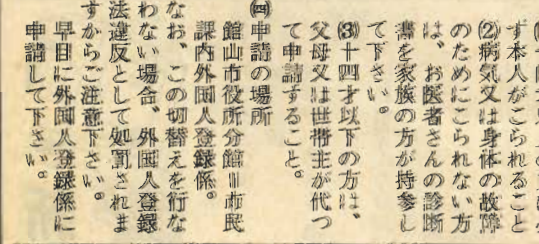 ず本人がこられること
⑵病気又は身体の故障
のためにこられない方
は、お医者さんの診断
書を家族の方が持参し
て下さい。
⑶十四才以下の方は、
父母又は世帯主が代つ
て申請すること。
㈣申請の場所
館山市役所分館＝市民
課内外国人登録係。
なお、この切替えを行な
わない場合、外国人登録
法違反として処罰されま
すからご注意下さい。
早目に外国人登録係に
申請して下さい。